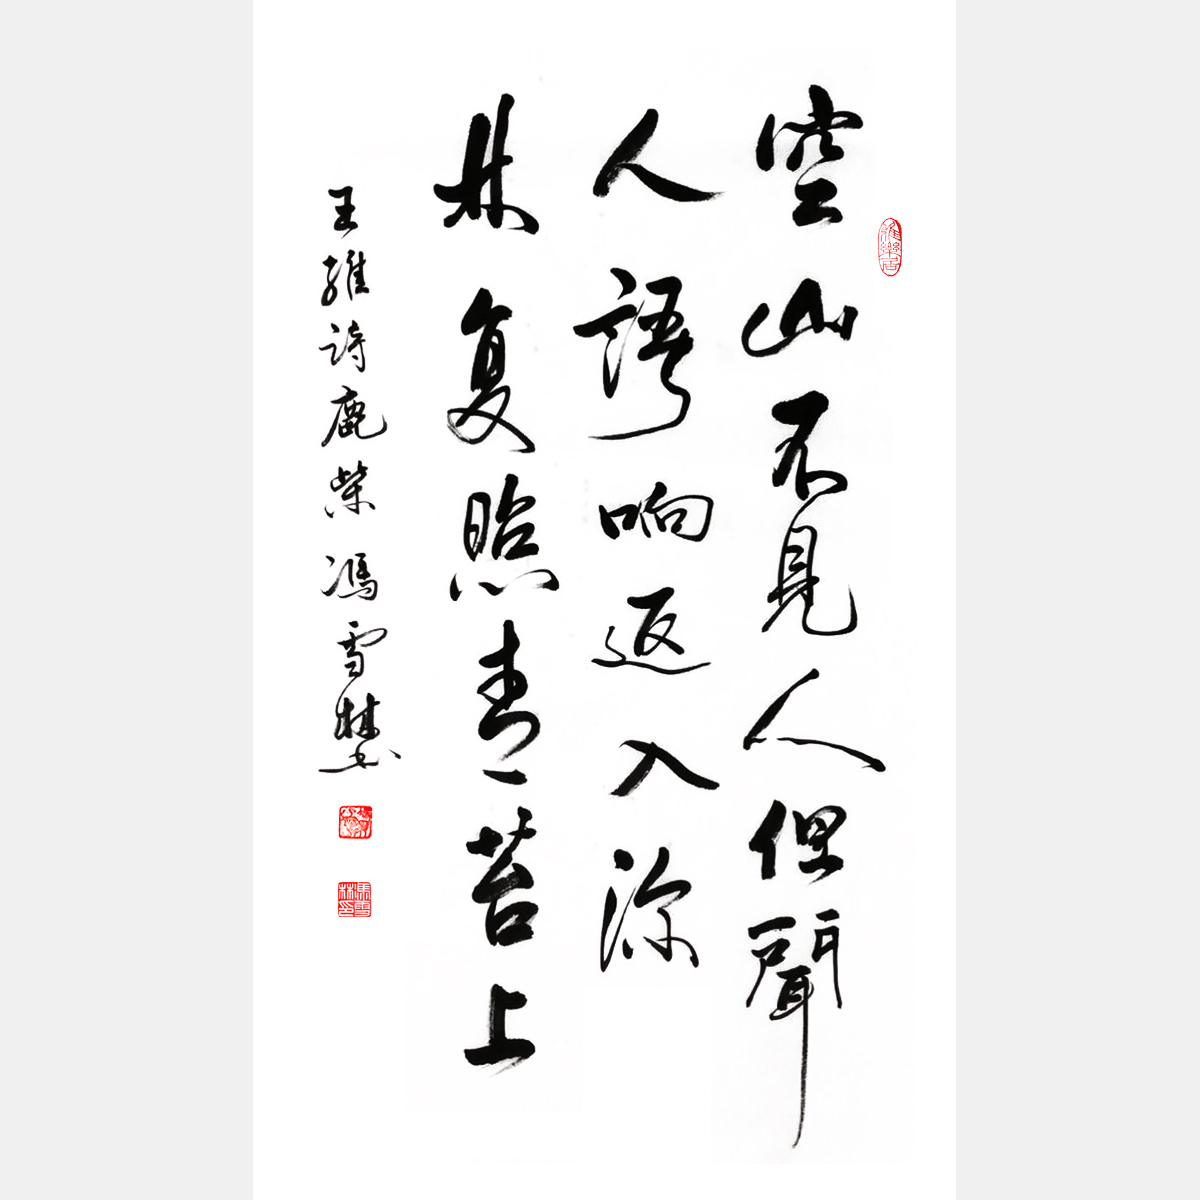 空山不見人但聞
人語响返入深
林复照青苔上
王維詩鹿柴 馮雪林书